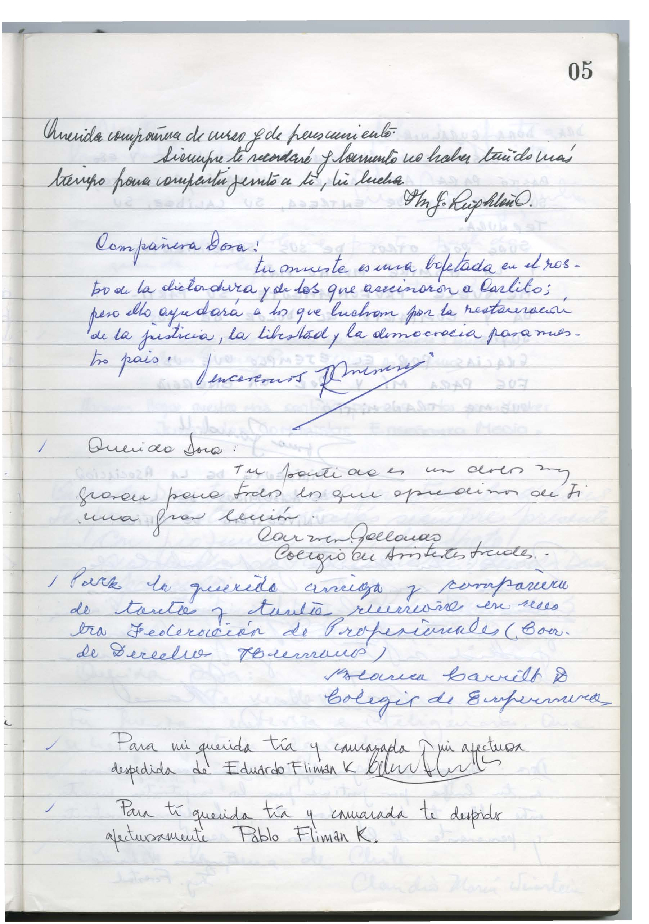 05
Querida compañera de curso y de pensamiento.
Siempre te recordaré y lamento no haber tenido más
tiempo para compartir junto a ti, tu lucha.
Compañera Dora:
tu muerte es una bofetada en el ros-
tro de la dictadura y de los que asesinaron a Carlitos;
pero ello ayudará a los que luchan por la restauración
de la justicia, la libertad y la democracia para nues-
tro país.
Venceremos
Querida Dora:
Tu partida es un dolor muy
grande para todos los que aprendimos de ti
una gran lección.
Carmen
Colegio de Asistentes Sociales.-
Para la querida amiga y compañera
de tantas y tantas reuniones en nues
tra Federación de Profesionales (Com.
de Derechos Humanos)
Blanca Carrillo D
Colegio de Enfermeras
Para mi querida tía y camarada mi afectuosa
despedida de Eduardo Fliman K
Para ti querida tía y camarada te despido
afectuosamente Pablo Fliman K.